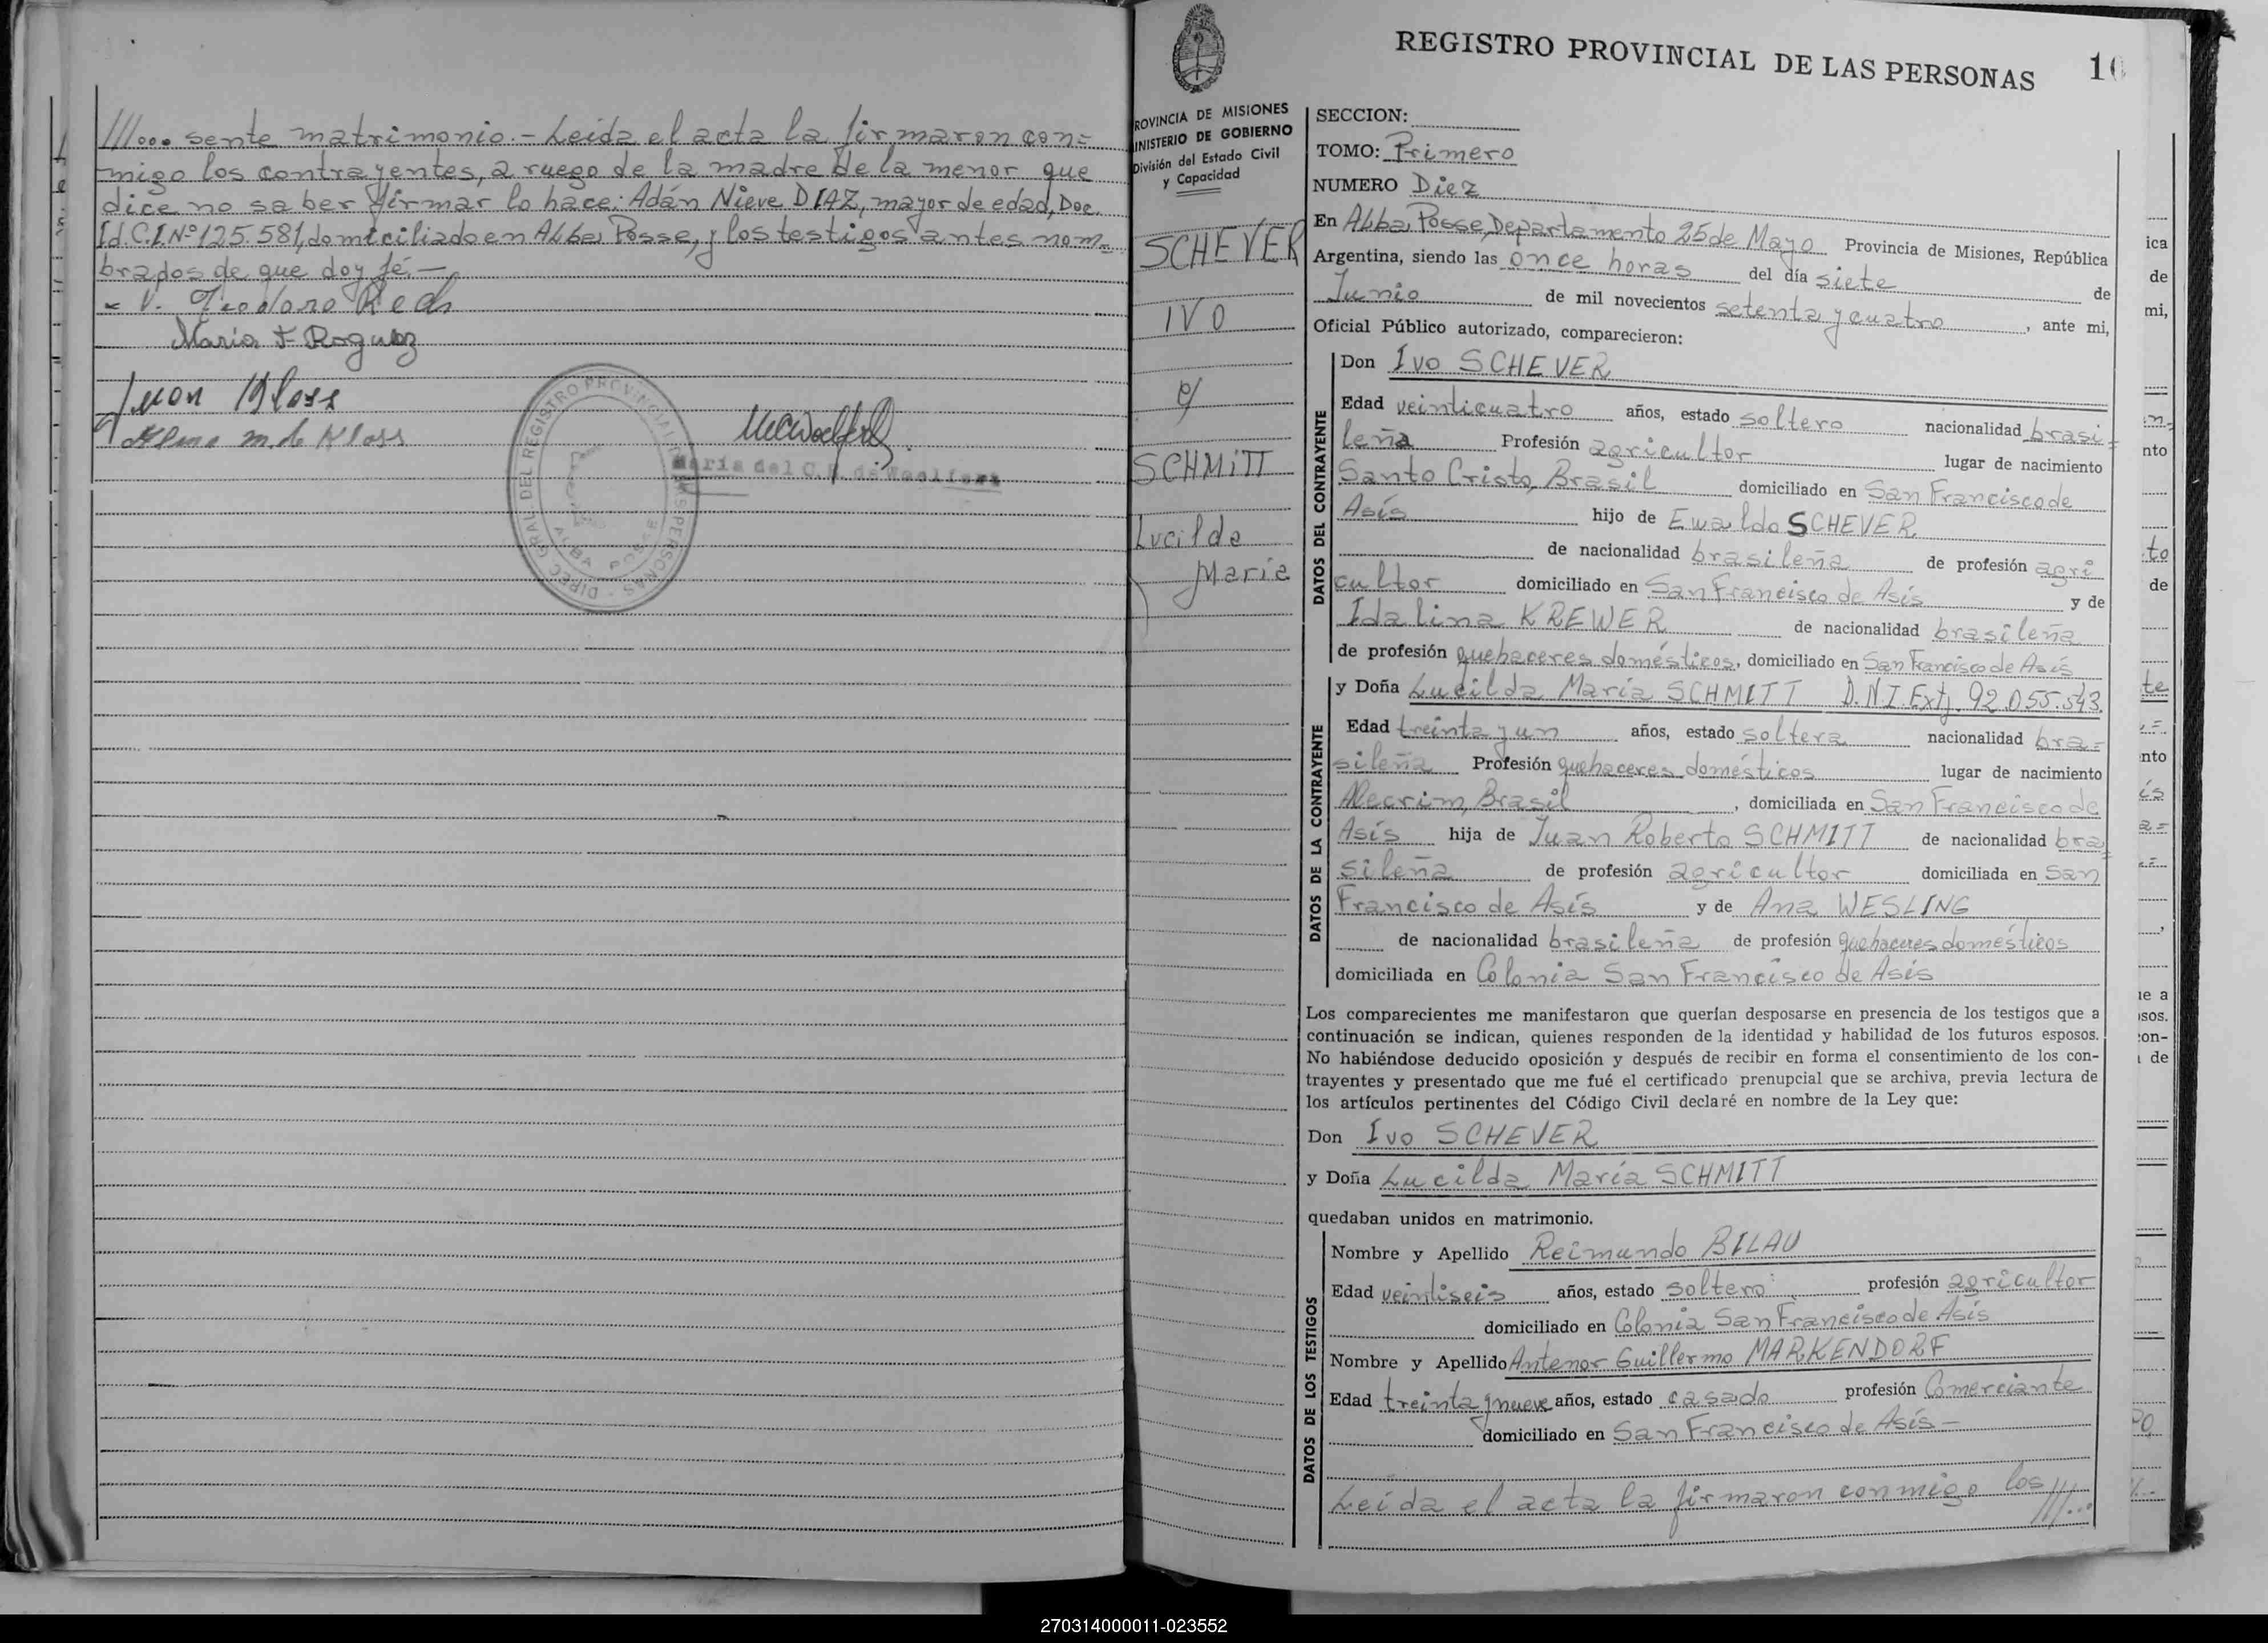 ///ooo sente matrimonio.- Leída el acta la firmaron con=
migo los contrayentes, a ruego de la madre de la menor que
dice no saber firmar lo hace: Adán Nieve DIAZ, mayor de edad, Doc.
Id. C.I.Nº 125.581, domiciliado en Alba Posse, y los testigos antes nom=
brados de que doy fé.—
María F Roguez
Juan Kloss
Alma m. de Kloss
DIREC. GRAL. DEL REGISTRO PROVINCIAL DE LAS PERSONAS
ALBA POSSE
REGISTRO PROVINCIAL DE LAS PERSONAS
10
ROVINCIA DE MISIONES
INISTERIO DE GOBIERNO
División del Estado Civil
y Capacidad
SCHEVER
IVO
c/
SCHMITT
Lucilda
María
SECCION:
TOMO: Primero
NUMERO Diez
En Alba Posse, Departamento 25 de Mayo Provincia de Misiones, República
Argentina, siendo las once horas del día siete de
Junio de mil novecientos setenta y cuatro, ante mi,
Oficial Público autorizado, comparecieron:
DATOS DEL CONTRAYENTE
Don Ivo SCHEVER
Edad veinticuatro años, estado soltero nacionalidad brasi=
leña Profesión agricultor lugar de nacimiento
Santo Cristo, Brasil domiciliado en San Francisco de
Asís hijo de Ewaldo SCHEVER
de nacionalidad brasileña de profesión agri
cultor domiciliado en San Francisco de Asís y de
Idalina KREWER de nacionalidad brasileña
de profesión quehaceres domésticos, domiciliado en San Francisco de Asís
DATOS DE LA CONTRAYENTE
y Doña Lucilda María SCHMITT D.N.I. Extj. 92.055.543.
Edad treinta y un años, estado soltera nacionalidad bra=
sileña Profesión quehaceres domésticos lugar de nacimiento
Alecrim, Brasil, domiciliada en San Francisco de
Asís hija de Juan Roberto SCHMITT de nacionalidad bra=
sileña de profesión agricultor domiciliada en San
Francisco de Asís y de Ana WESLING
de nacionalidad brasileña de profesión quehaceres domésticos
domiciliada en Colonia San Francisco de Asís
Los comparecientes me manifestaron que querían desposarse en presencia de los testigos que a
continuación se indican, quienes responden de la identidad y habilidad de los futuros esposos.
No habiéndose deducido oposición y después de recibir en forma el consentimiento de los con-
trayentes y presentado que me fué el certificado prenupcial que se archiva, previa lectura de
los artículos pertinentes del Código Civil declaré en nombre de la Ley que:
Don Ivo SCHEVER
y Doña Lucilda María SCHMITT
quedaban unidos en matrimonio.
DATOS DE LOS TESTIGOS
Nombre y Apellido Reimundo BILAU
Edad veintiseis años, estado soltero profesión agricultor
domiciliado en Colonia San Francisco de Asís
Nombre y Apellido Antenor Guillermo MARKENDORF
Edad treinta y nueve años, estado casado profesión Comerciante
domiciliado en San Francisco de Asís—
Leída el acta la firmaron conmigo los ///...
ica
de
mi,
nto
to
de
te
nto
ís
ie a
sos.
on-
de
270314000011-023552